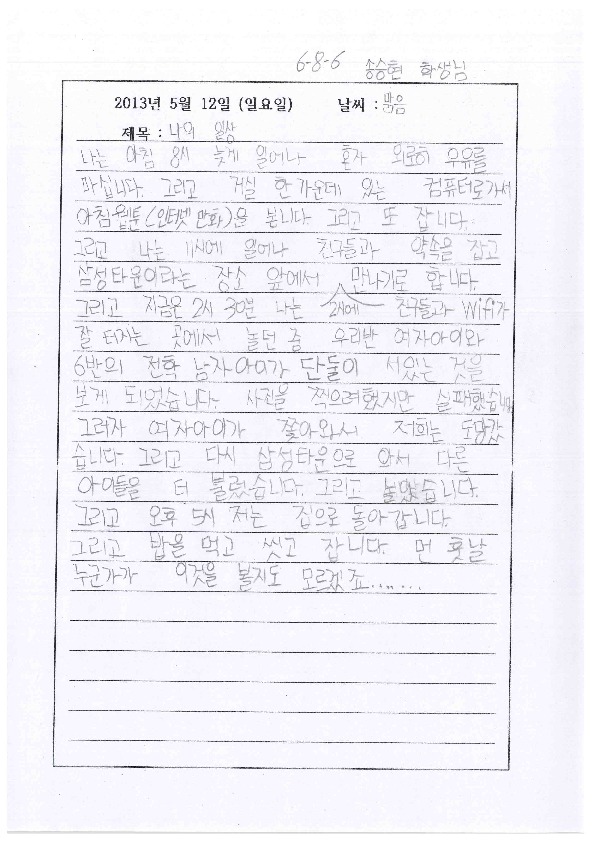 6-8-6 송승현 학생님
2013년 5월 12일 (일요일) 날씨 : 맑음
제목 : 나의 일상
나는 아침 8시 늦게 일어나 혼자 외로히 우유를
마십니다. 그리고 거실 한가운데 있는 컴퓨터로가서
아침웹툰(인터넷 만화)을 봅니다 그리고 또 잡니다.
그리고 나는 11시에 일어나 친구들과 약속을 잡고
삼성타운이라는 장소 앞에서 만나기로 합니다
그리고 지금은 2시 30분 나는 2시에 친구들과 Wifi가
잘 터지는 곳에서 놀던 중 우리반 여자아이와
6반의 전학 남자아이가 단둘이 서있는 것을
보게 되었습니다. 사진을 찍으려했지만 실패했습니다
그러자 여자아이가 쫓아와서 저희는 도망갔
습니다. 그리고 다시 삼성타운으로 와서 다른
아이들을 더 불렀습니다. 그리고 놀았습니다.
그리고 오후 5시 저는 집으로 돌아갑니다.
그리고 밥을 먹고 씻고 잡니다. 먼 훗날
누군가가 이것을 볼지도 모르겠죠.......